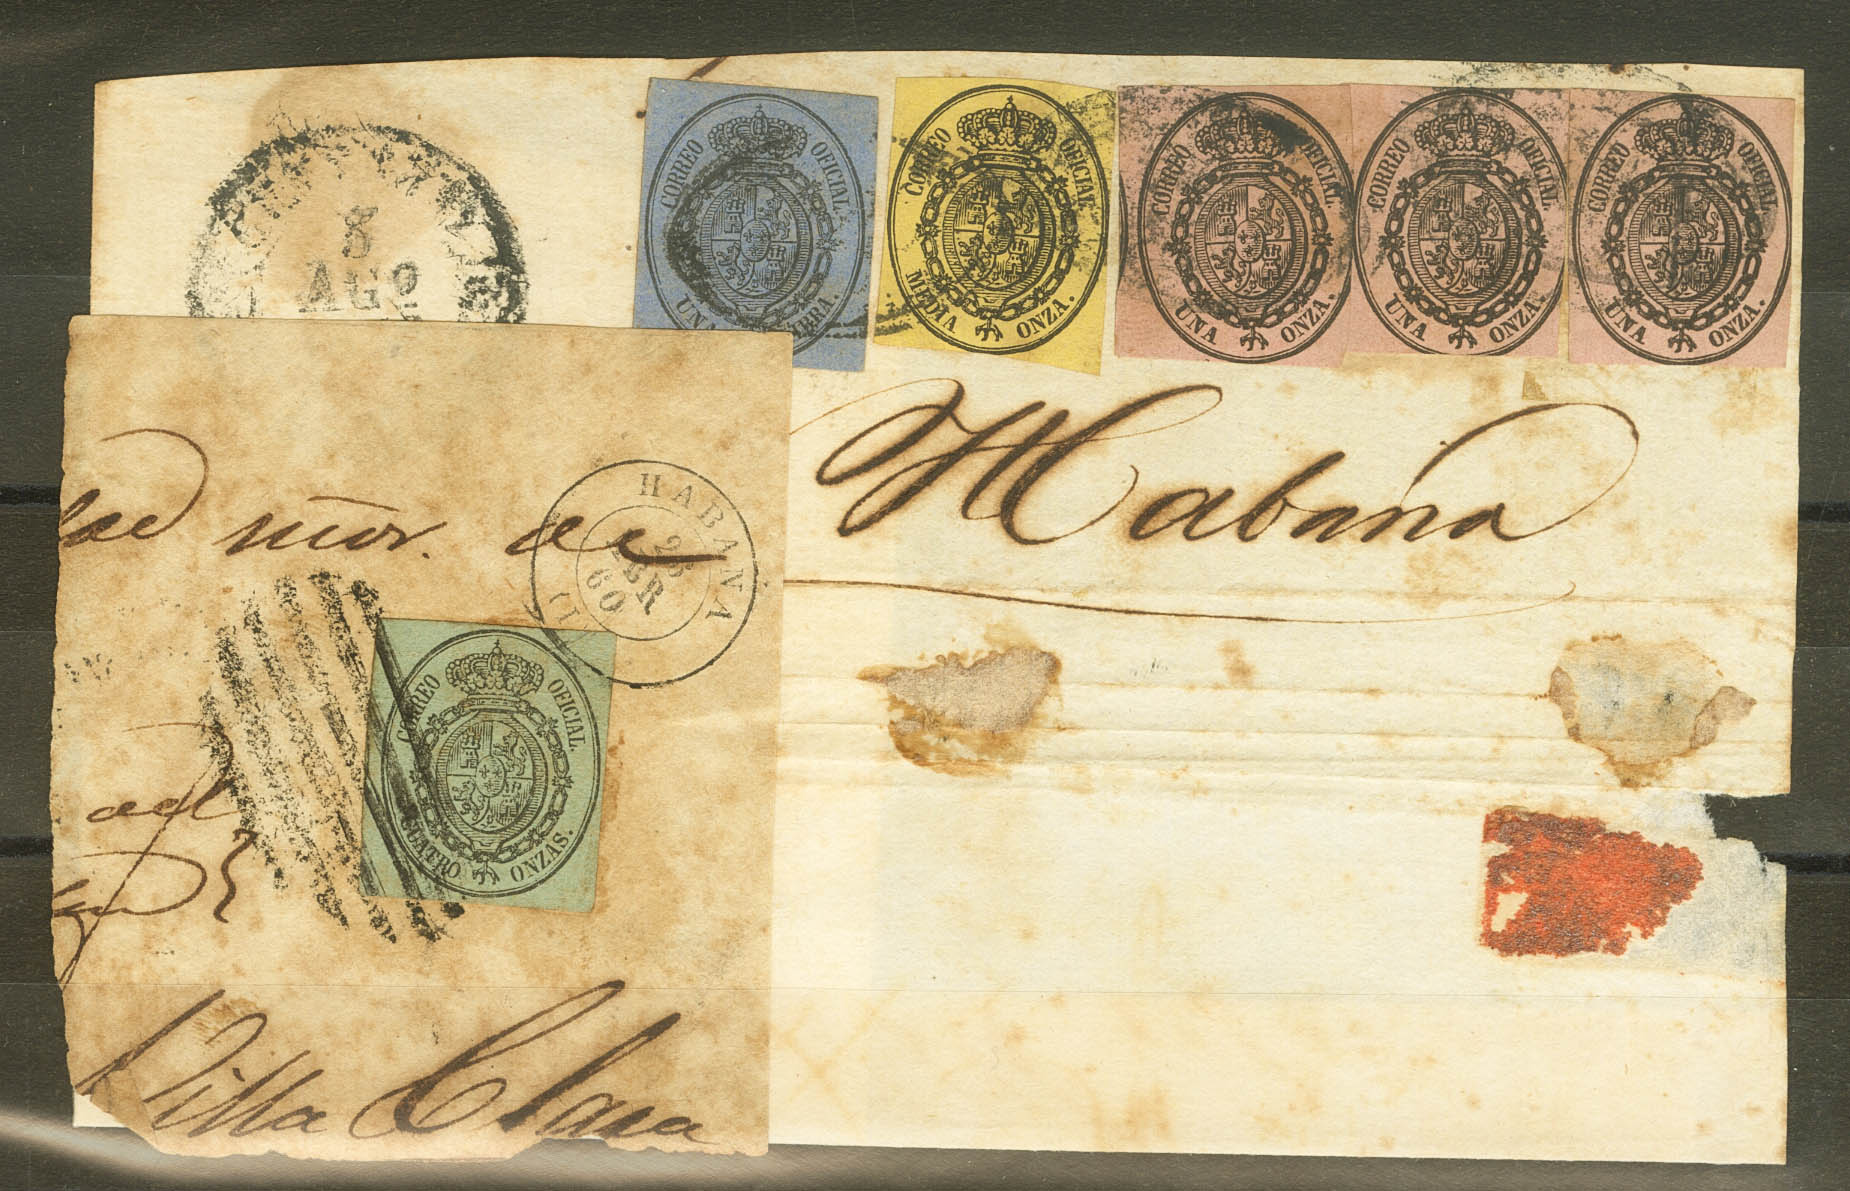 5
AGO
CORREO OFICIAL.
UNA LIBRA.
CORREO OFICIAL.
MEDIA ONZA.
CORREO OFICIAL.
UNA ONZA.
CORREO OFICIAL.
UNA ONZA.
CORREO OFICIAL.
UNA ONZA.
Habana
mör. de
HABANA
60
CORREO OFICIAL.
CUATRO ONZAS.
Villa Clara